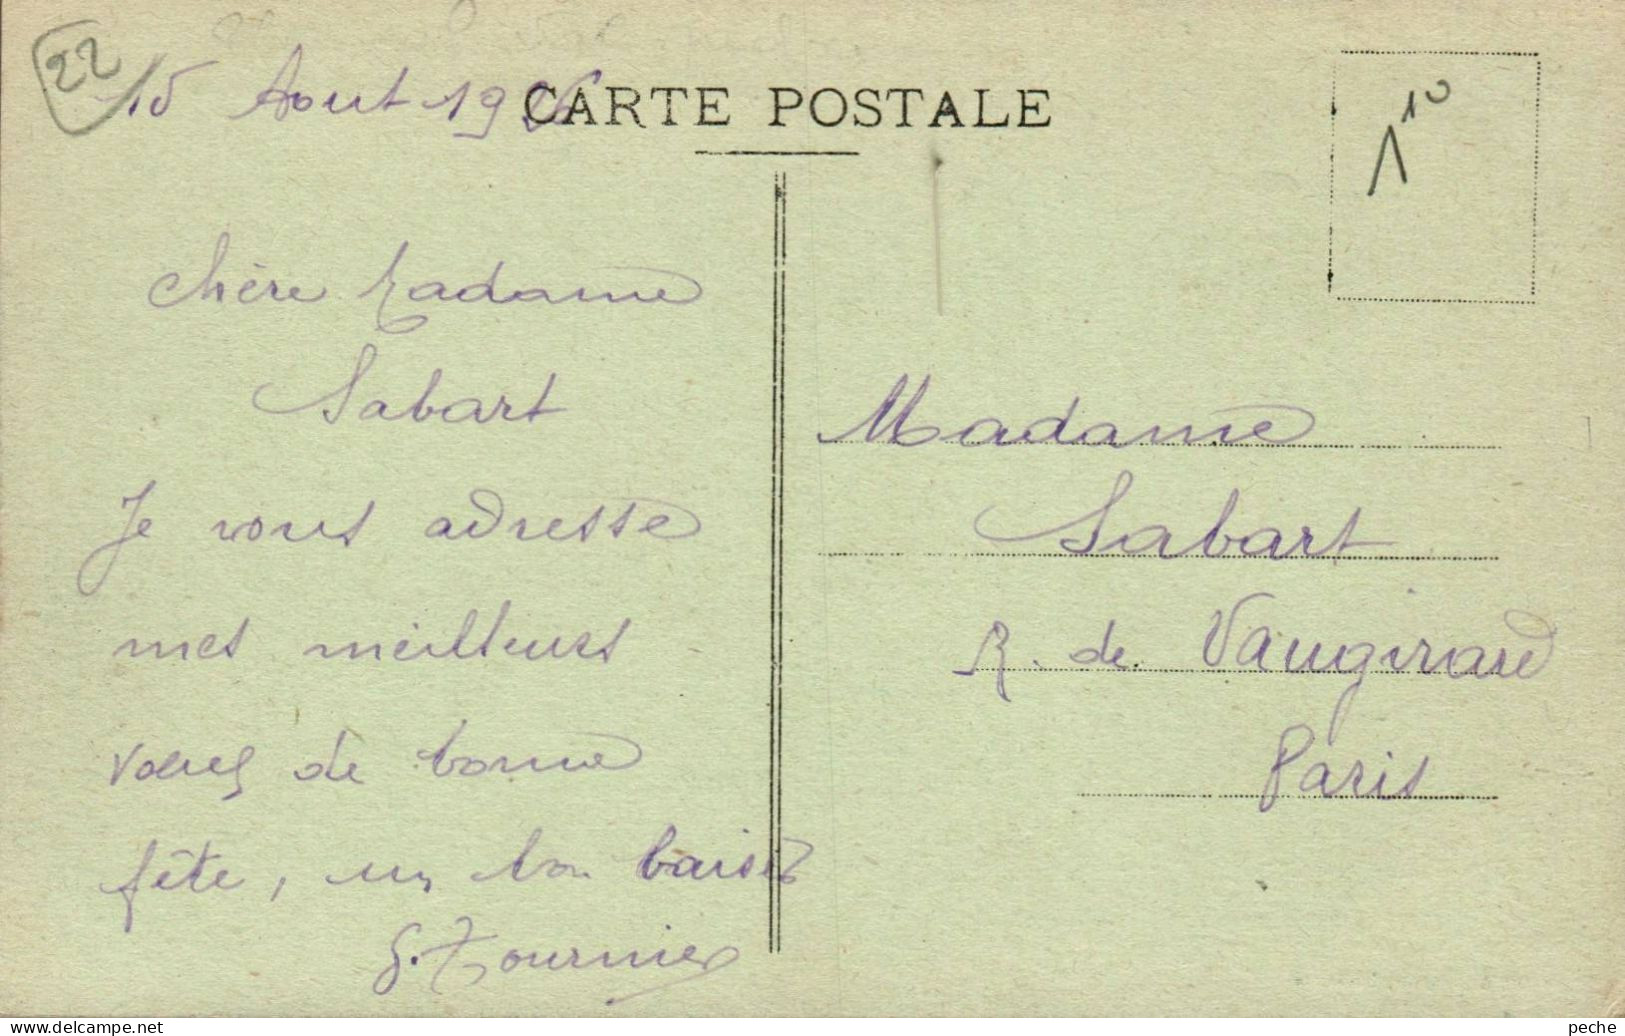 22
15 Aout 19
CARTE POSTALE
1 10
chère Madame
Sabart
Je vous adresse
mes meilleurs
vœux de bonne
fête, un bon baiser
G. Tournier
Madame
Sabart
R. de Vaugirard
Paris
www.delcampe.net
peche